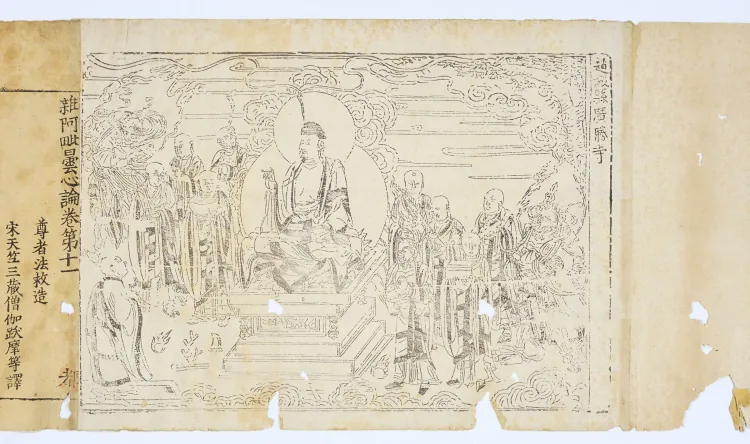 趙城縣廣勝寺
雜阿毗曇心論卷第十一 都
尊者法救造
宋天竺三藏僧伽跋摩等譯